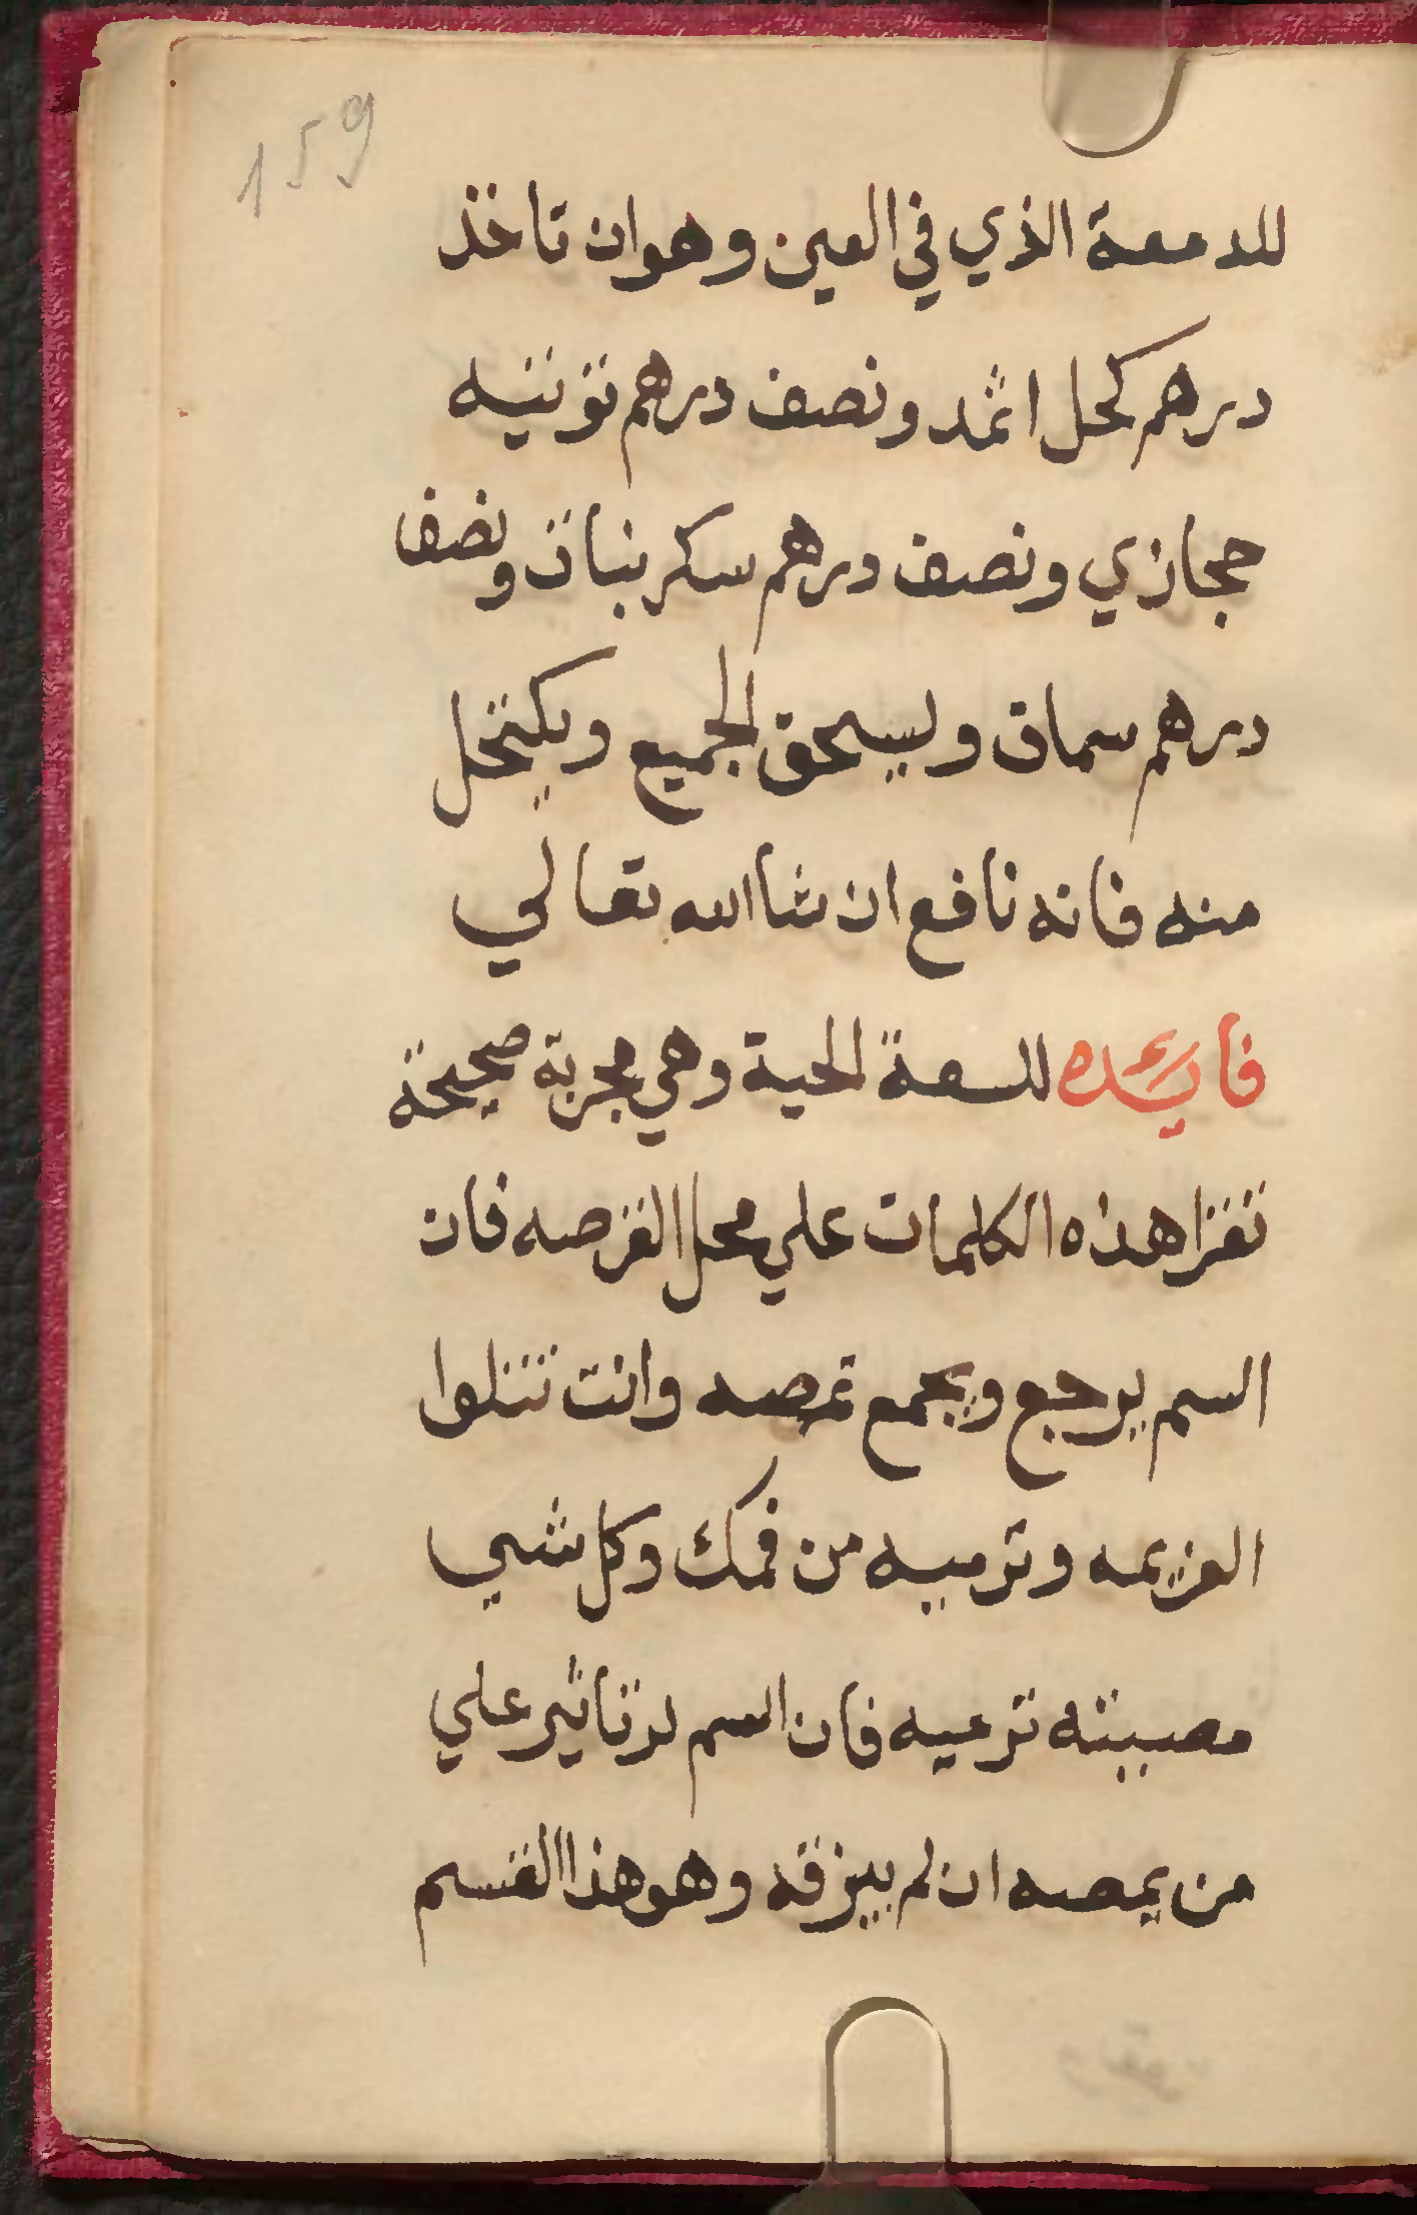 159
للدمعة الذي في العين وهو ان تاخذ
درهم كحل اثمد ونصف درهم توتيه
حجازي ونصف درهم سكر نبات ونصف
درهم سماق ويسحق الجميع ويكتحل
منه فانه نافع ان شا الله تعالي
فايده للسعة الحية وهي مجربة صحيحة
تقرا هذه الكلمات علي محل القرصه فان
السم يرجع ويجمع تمصه وانت تتلوا
العزيمه وترميه من فمك وكل شي
مصيته ترميه فان السم له تاثير علي
من يمصه ان لم يبزقه وهو هذا القسم